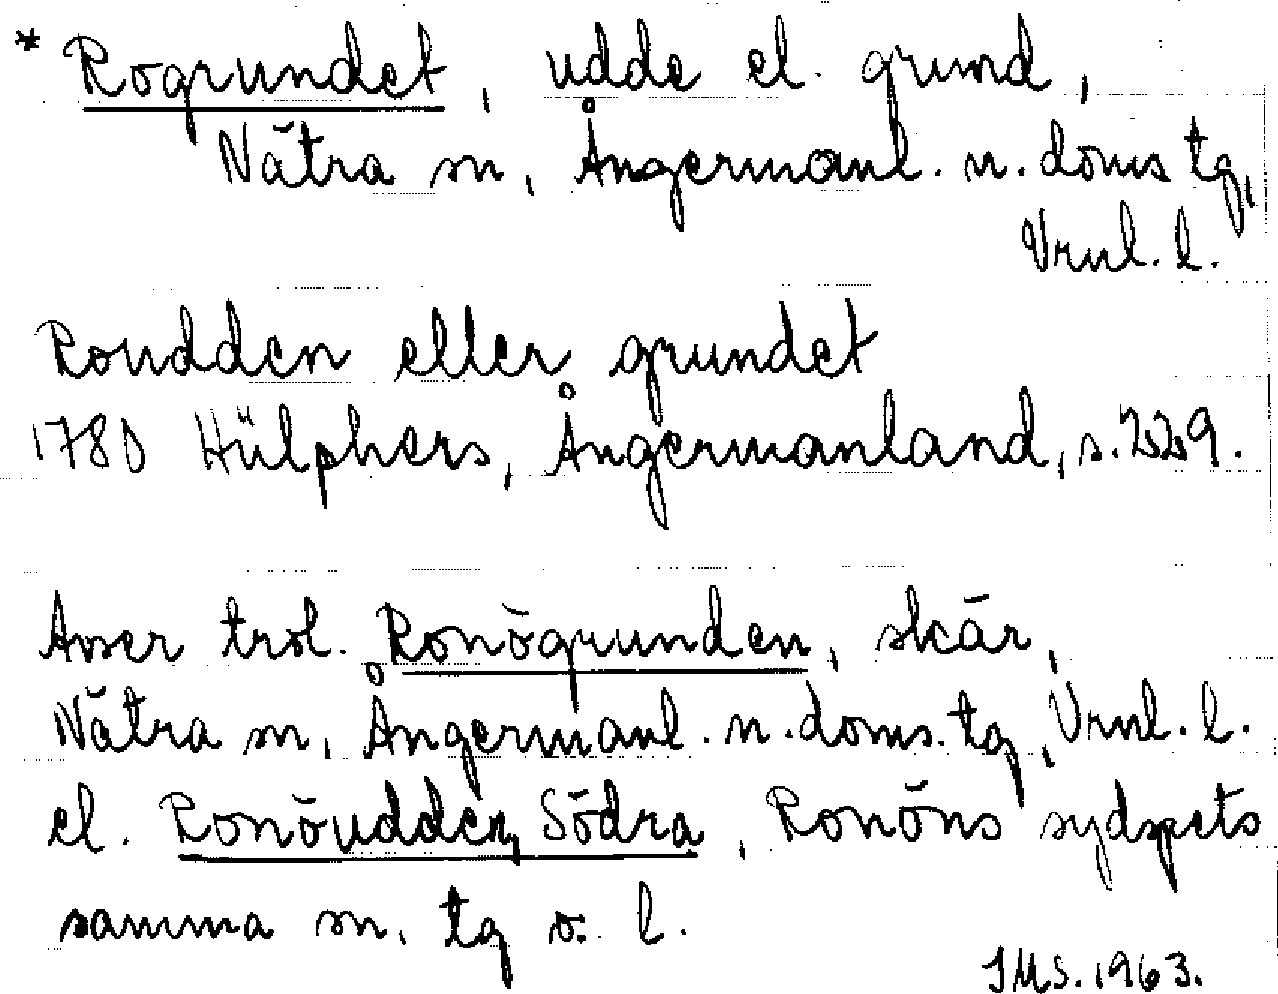 * Rogrundet, udde el. grund,
Nätra sn, Ångermanl. n. doms tg,
Vrnl. l.
Roudden eller grundet
1780 Hülphers, Ångermanland, s. 229.
Avser trol. Ronögrunden, skär,
Nätra sn, Ångermanl. n. doms. tg, Vrnl. l.
el. Ronöudden, Södra, Ronöns sydspets
samma sn, tg o. l.
IMS. 1963.